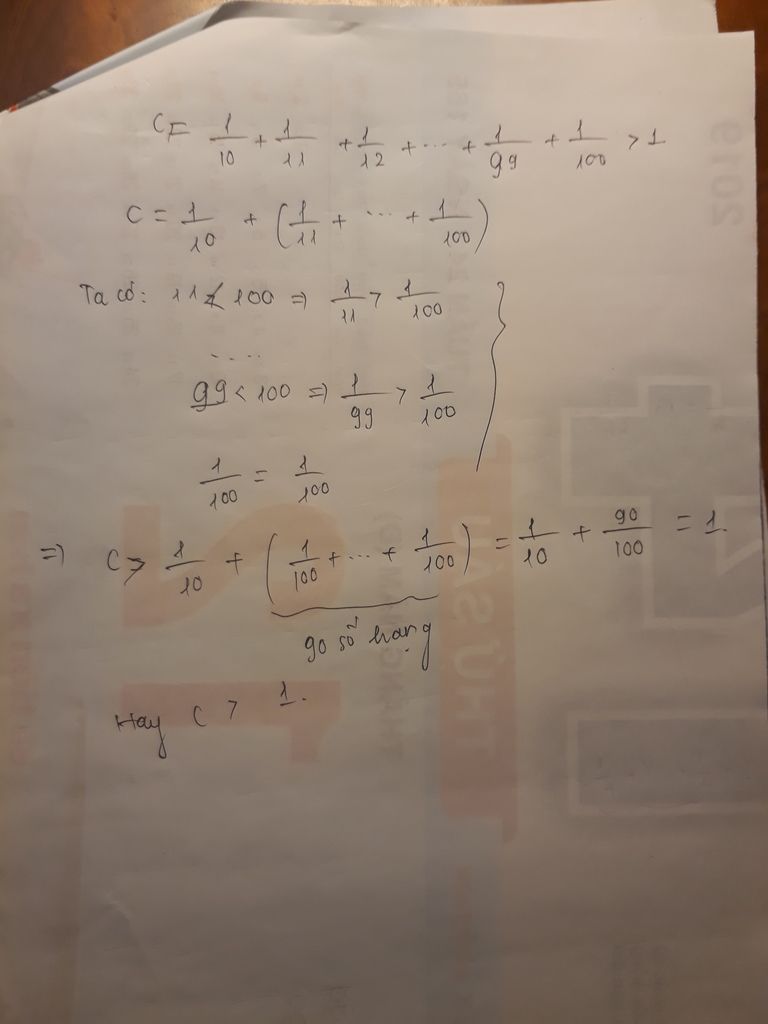 C = 1/10 + 1/11 + 1/12 + ... + 1/99 + 1/100 > 1
C = 1/10 + (1/11 + ... + 1/100)
Ta có: 11 < 100 => 1/11 > 1/100
....
99 < 100 => 1/99 > 1/100
1/100 = 1/100
=> C > 1/10 + (1/100 + ... + 1/100) = 1/10 + 90/100 = 1.
90 số hạng
Hay C > 1.
2019
THỨ SÁU
12